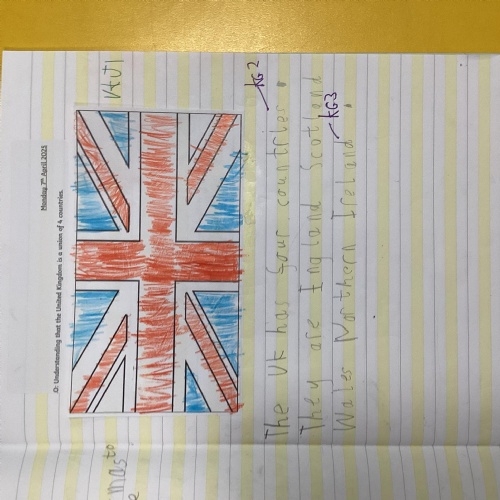 Monday 7th April 2025
: Understanding that the United Kingdom is a union of 4 countries.
The UK has four countries.
KG2
They are England Scotland
KG3
Wales Northern Ireland.